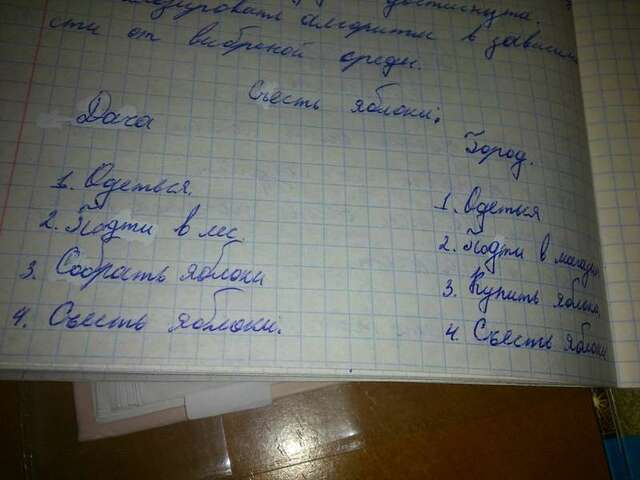 достигнута.
алгоритм в зависимо
сти от выбраной среды.
Съесть яблоки.
Дача
1. Одеться.
2. Подти в лес
3. Собрать яблоки
4. Съесть яблоки.
Город.
1. Одеться
2. Подти в магазин
3. Купить яблоки
4. Съесть яблоки